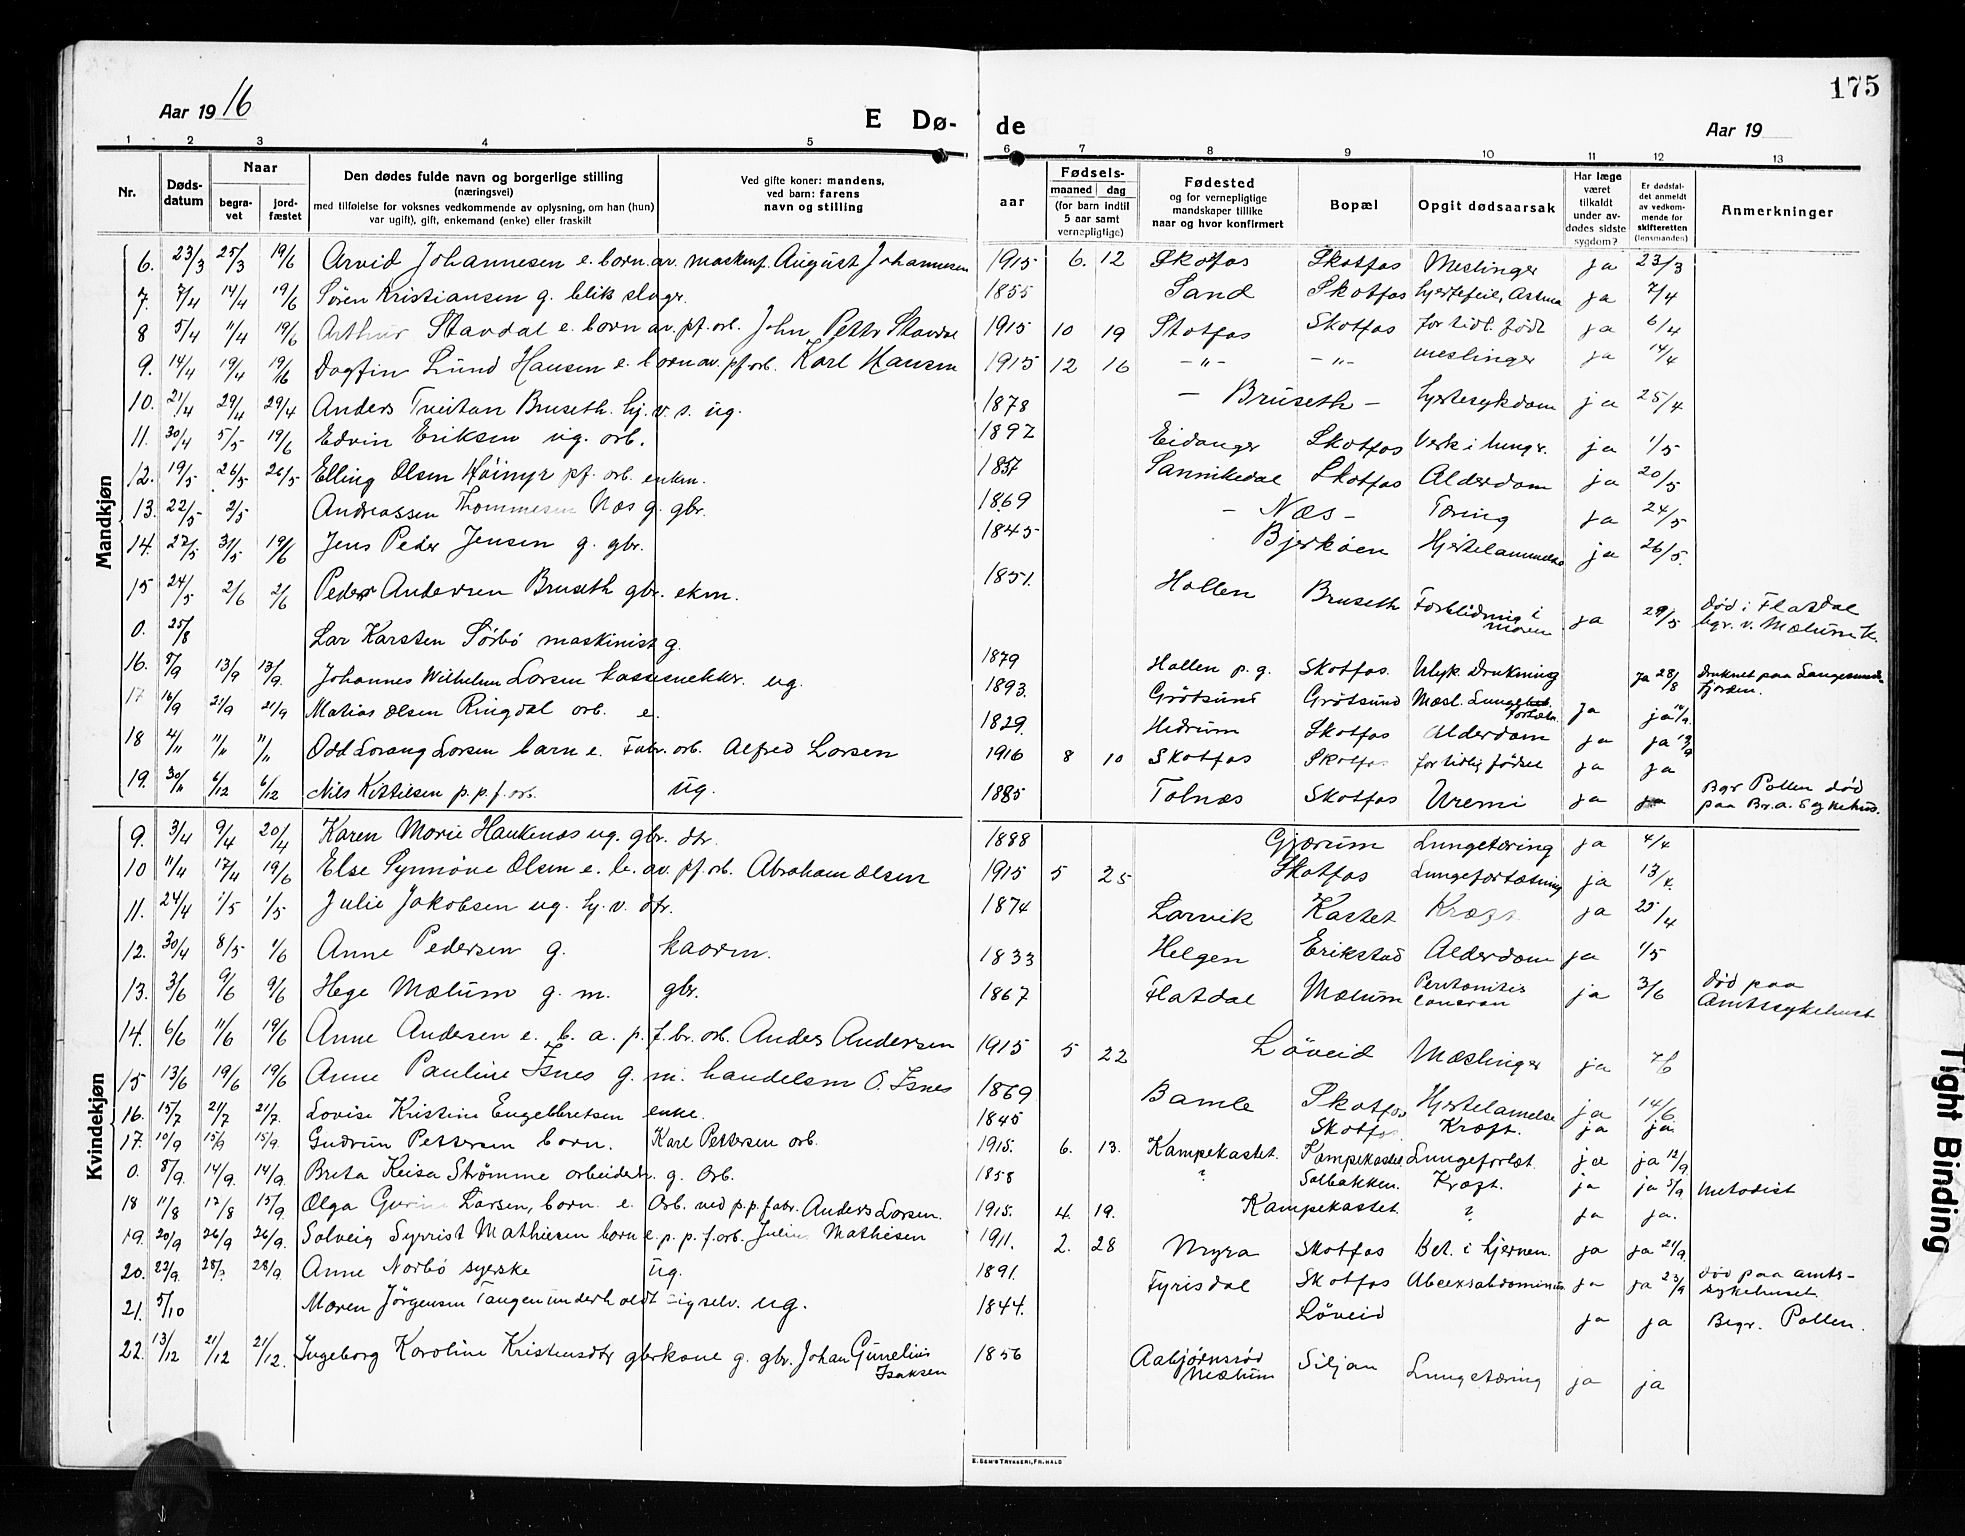 175
Aar 1916
E Dø-
de
Aar 19
1 2 3 4 5 6 7 8 9 10 11 12 13
Nr.
Døds-
datum
Naar
begra-
vet
jord-
fæstet
Den dødes fulde navn og borgerlige stilling
(næringsvei)
med tilføielse for voksnes vedkommende av oplysning, om han (hun)
var ugift), gift, enkemand (enke) eller fraskilt
Ved gifte koner: mandens,
ved barn: farens
navn og stilling
aar
Fødsels-
maaned dag
(for barn indtil
5 aar samt
vernepligtige)
Fødested
og for vernepligtige
mandskaper tillike
naar og hvor konfirmert
Bopæl
Opgit dødsaarsak
Har læge
været
tilkaldt
under av-
dødes sidste
sygdom?
Er dødsfal-
det anmeldt
av vedkom-
mende for
skifteretten
(lensmanden)
Anmerkninger
Mandkjøn
6. 23/3 25/3 19/6 Arvid Johannesen e. born av maskmf. August Johannesen 1915 6. 12 Skotfos Skotfos Meslinger ja 23/3
7. 7/4 14/4 19/6 Sören Kristiansen g. blikslagr. 1855 Sand Skotfos hjertefeil, Astma ja 7/4
8 5/4 11/4 19/6 Arthur Stavdal e. born av pf. orb. John Petter Stavdal 1915 10 19 Skotfos Skotfos for tidl. født ja 6/4
9. 14/4 19/4 19/16 Dagfin Lund Hansen e. born av. pf orb. Karl Hansen 1915 12 16 -"- -"- meslinger ja 14/4
10. 21/4 29/4 29/4 Anders Tveitan Bruseth. hj. v. s. ug. 1878 - Bruseth - hjertesykdom ja 25/4
11. 30/4 5/5 19/6 Edvin Eriksen ug. orb. 1892 Eidanger Skotfos Verk i lungr. ja 1/5
12. 19/5 26/5 26/5 Elling Olsen Höimyr pf. orb. enkm. 1837 Sannikedal Skotfos Alderdom ja 20/5
13. 22/5 2/5 Andreassen Thommesen Næs g. gbr. 1869 - Næs - Tæring ja 24/5
14. 22/5 31/5 19/6 Jens Peder Jensen g. gbr. 1845 Bjerköen Hjertelammelse ja 26/5.
15 24/5 2/6 2/6 Peder Andersen Bruseth gbr. ekm. 1851. Hollen Bruseth Forblödning i
maven ja 29/5 død i Flatdal
bgr. v. Mælum K.
0. 25/8 Lar Karsten Sörbö maskinist g. 1879 Hollen p. g. Skotfos. Ulyk. Drukning ja 28/8 Druknet paa Langesunds-
fjorden.
16. 8/9 13/9 13/9. Johannes Wilhelm Larsen kassesnekkr. ug. 1893. Grötsund Grötsund Mæsl. Lunge
fortætn. ja ja 10/9.
17 16/9 21/9 21/9 Matias Olsen Ringdal orb. e. 1829. Hedrum Skotfos Alderdom ja ja 19/9
18 4/11 11/11 11/11 Odd Lorang Larsen barn e. Fabr. orb. Alfred Larsen 1916 8 10 Skotfos Skotfos for tidlig födsel ja ja
19. 30/11 6/12 6/12 Nils Kittilsen p. p. f. orb. ug. 1885 Tolnæs Skotfos Uremi ja ja Bgr Pollen død
paa Br. a. Sykehus.
Kvindekjøn
9. 3/4 9/4 20/4 Karen Marie Haukenæs ug. gbr. dtr. 1888 Gjærum Lungetæring ja 4/4
10 11/4 17/4 19/6 Else Synnöve Olsen e. b. av. pf. orb. Abraham Olsen 1915 5 25 Skotfos Lungefortætning ja 13/4.
11. 24/4 1/5 1/5 Julie Jakobsen ug. hj. v. dtr. 1874 Larvik Kastet Kræft ja 25/4
12. 30/4 8/5 1/6 Anne Pedersen g. kaarm. 1833 Helgen Erikstad Alderdom ja 1/5
13. 3/6 9/6 9/6 Hege Mælum g. m. gbr. 1867 Flatdal Mælum Peritonitis
ja 3/6 død paa
Amtssykehuset
14. 6/6 11/6 19/6 Anne Andersen e. b. a. p. f. br. orb. Anders Andersen 1915 5 22 Löveid Mæslinger ja 7/6
15 13/6 19/6 19/6 Anne Pauline Isnes g. m. handelsm O. Isnes 1869 Bamle Skotfos Hjertelamelse ja 14/6
16. 15/7 21/7 21/7. Lovise Kristine Engelbretsen enke. 1845 Skotfos. Kræft. ja ja.
17. 10/9 15/9 15/9. Gudrun Pettersen born. Karl Pettersen orb. 1915. 6. 13. Kampekastet. Kampekastet Lungefortæt. ja ja 12/9
0. 8/9. 14/9. 14/9. Brita Keisa Strømme arbeider. g. Orb. 1858 ? Solbakken. Kræft. ja ja 5/9 Metodist
18 11/8 17/8 15/9. Olga Larsen, born e. Orb. ved p. p. fabr. Anders Larsen. 1915. 4. 19. Kampekastet. ? ja ja.
19. 20/9 26/9 26/9. Solveig Syrrist Mathiesen born e. p. p. f. orb. Julius Mathiesen 1911. 2. 28 Myra Skotfos Bet. i hjernen. ja ja 21/9.
20. 22/9. 28/9 28/9. Anne Norbö syerske ug. 1891. Fyrisdal Skotfos ja ja 23/9 død paa amts-
sykehuset.
21. 5/10 Maren Jörgensen Tangen underholdt sig selv. ug. 1844. Löveid ja ja Begr. Pollen.
22. 13/12 21/12 21/12. Ingeborg Karoline Kristensdtr gbrkone g. gbr. Johan Gunelius
Isaksen 1856 Aabjörnsröd
Mælum Siljan Lungetæring ja ja
E. SEM'S TRYKKERI, FR.HALD
Tight Binding